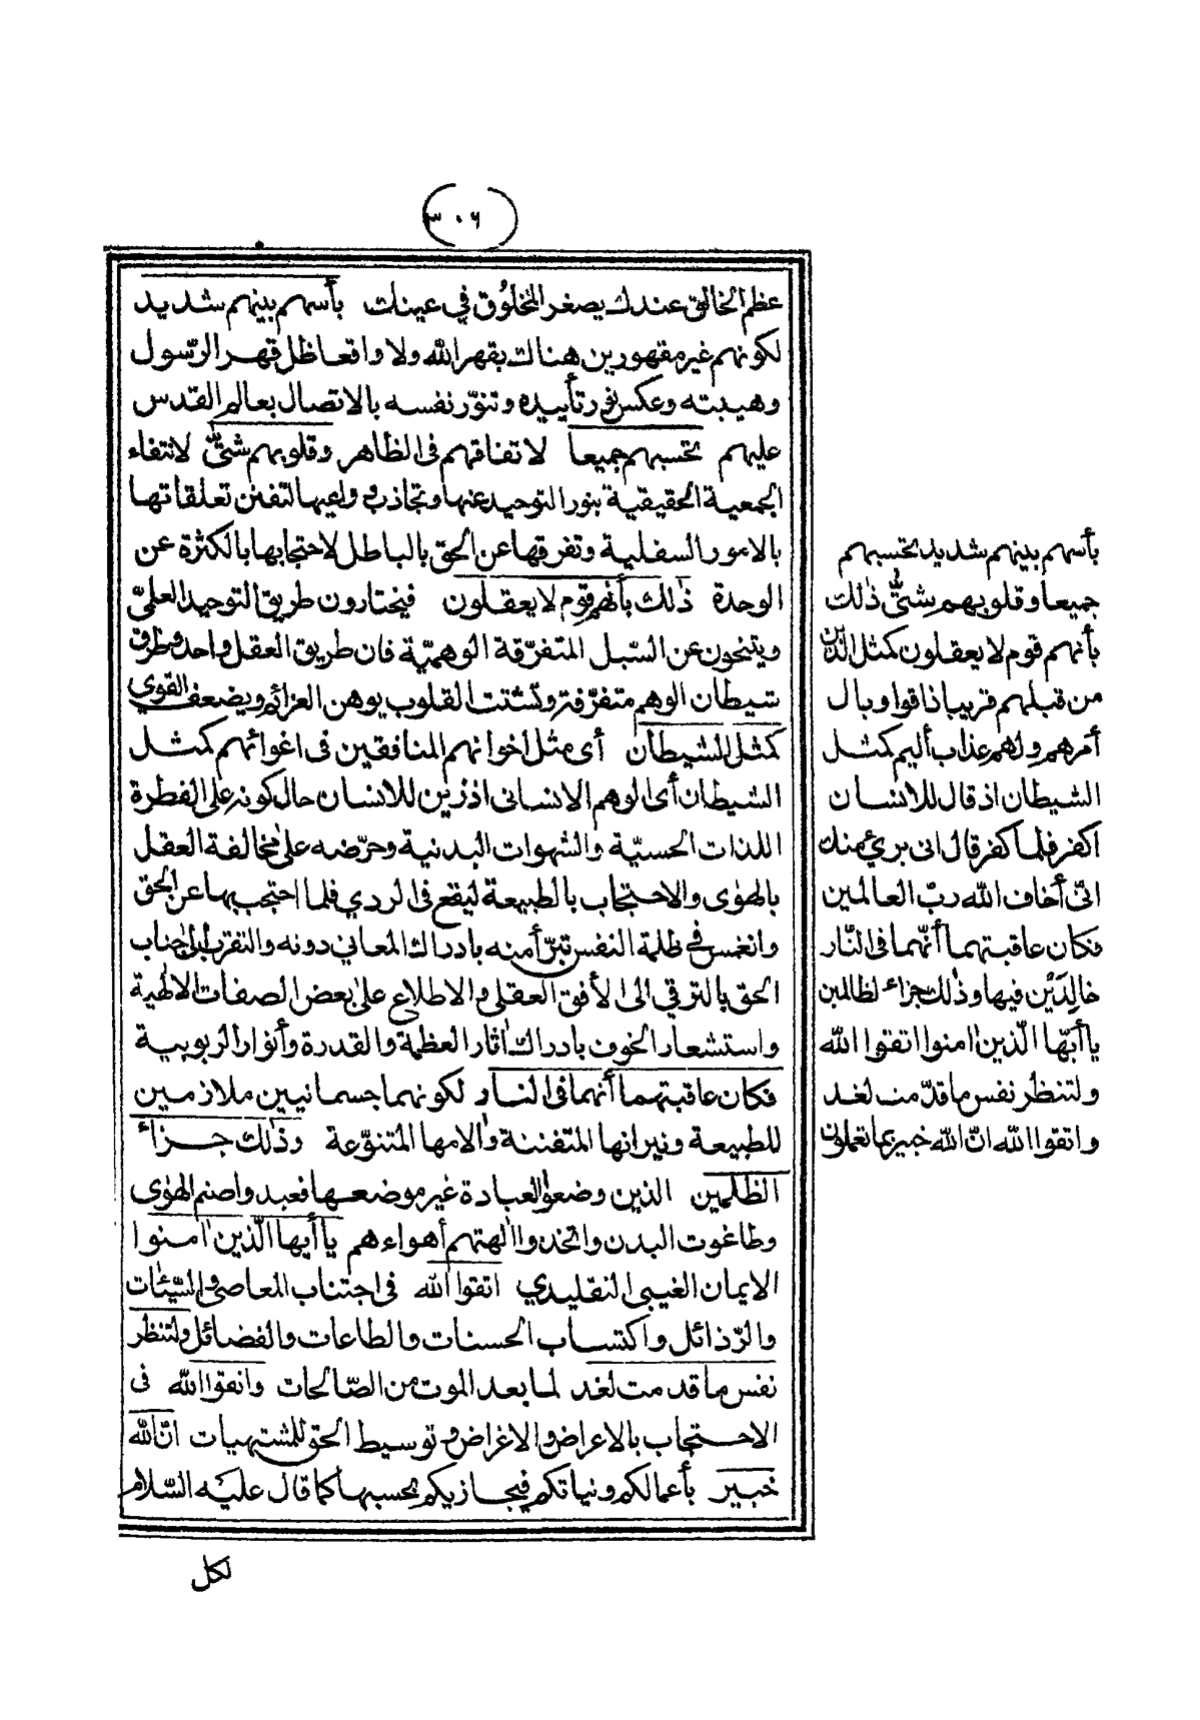 (٣٠٦)
عظم الخالق عندك يصغر المخلوق في عينك بأسهم بينهم شديد
لكونهم غير مقهورين هنالك بقهر الله ولا واقعا ظل قهر الرّسول
وهيبته وعكس نور تأييده وتنوّر نفسه بالاتصال بعالم القدس
عليهم تحسبهم جميعا لاتفاقهم فى الظاهر وقلوبهم شتّى لانتفاء
الجمعية الحقيقية بنور التوحيد عنها وتجاذب دواعيها لتفنن تعلقاتها
بالامور السفلية وتفرقها عن الحق بالباطل لاحتجابها بالكثرة عن
الوحدة ذٰلك بأنهم قوم لا يعقلون فيختارون طريق التوحيد العلىّ
ويتنحون عن السّبل المتفرّقة الوهميّة فان طريق العقل واحد وطرق
شيطان الوهم متفرّقة وتشتت القلوب يوهن العزائم ويضعف القوي
كمثل الشيطان أى مثل اخوانهم المنافقين فى اغوائهم كمثل
الشيطان أى الوهم الانسانى اذ زيّن للانسان حال كونه على الفطرة
اللذات الحسيّة والشهوات البدنية وحرّضه على مخالفة العقل
بالهوٰى والاحتجاب بالطبيعة ليقع فى الردي فلما احتجب بها عن الحق
وانغمس في ظلمة النفس تبرّأ منه بادراك المعاني دونه والتقرب الى جناب
الحق بالترقي الى الأفق العقلى والاطلاع على بعض الصفات الالٰهية
واستشعار الخوف بادراك اٰثار العظمة والقدرة وأنوار الربوبية
فكان عاقبتهما أنهما فى النار لكونهما جسمانيين ملازمين
للطبيعة ونيرانها المتفننة واٰلامها المتنوّعة وذٰلك جزاء
الظلمين الذين وضعوا العبادة غير موضعها فعبدوا صنم الهوٰى
وطاغوت البدن واتخذوا اٰلهتهم أهواءهم يا أيها الّذين اٰمنوا
الايمان الغيبي التقليدي اتقوا الله فى اجتناب المعاصى والسّيئات
والرّذائل واكتساب الحسنات والطاعات والفضائل ولتنظر
نفس ما قدمت لغد لما بعد الموت من الصّالحات واتقوا الله فى
الاحتجاب بالاعراض والاغراض وتوسيط الحق للمشتهيات انّ الله
خبير بأعمالكم ونياتكم فيجازيكم بحسبها كما قال عليه السّلام
لكل
بأسهم بينهم شديد تحسبهم
جميعا وقلوبهم شتّى ذٰلك
بأنهم قوم لا يعقلون كمثل الذين
من قبلهم قريبا ذاقوا وبال
أمرهم ولهم عذاب أليم كمثل
الشيطان اذ قال للانسان
اكفر فلما كفر قال انى بريء منك
انّى أخاف الله ربّ العالمين
فكان عاقبتهما أنّهما فى النّار
خالِدَيْن فيها وذٰلك جزاء لظالمين
يا أيّها الّذين اٰمنوا اتقوا الله
ولتنظر نفس ما قدّمت لغد
واتقوا الله انّ الله خبير بما تعملون